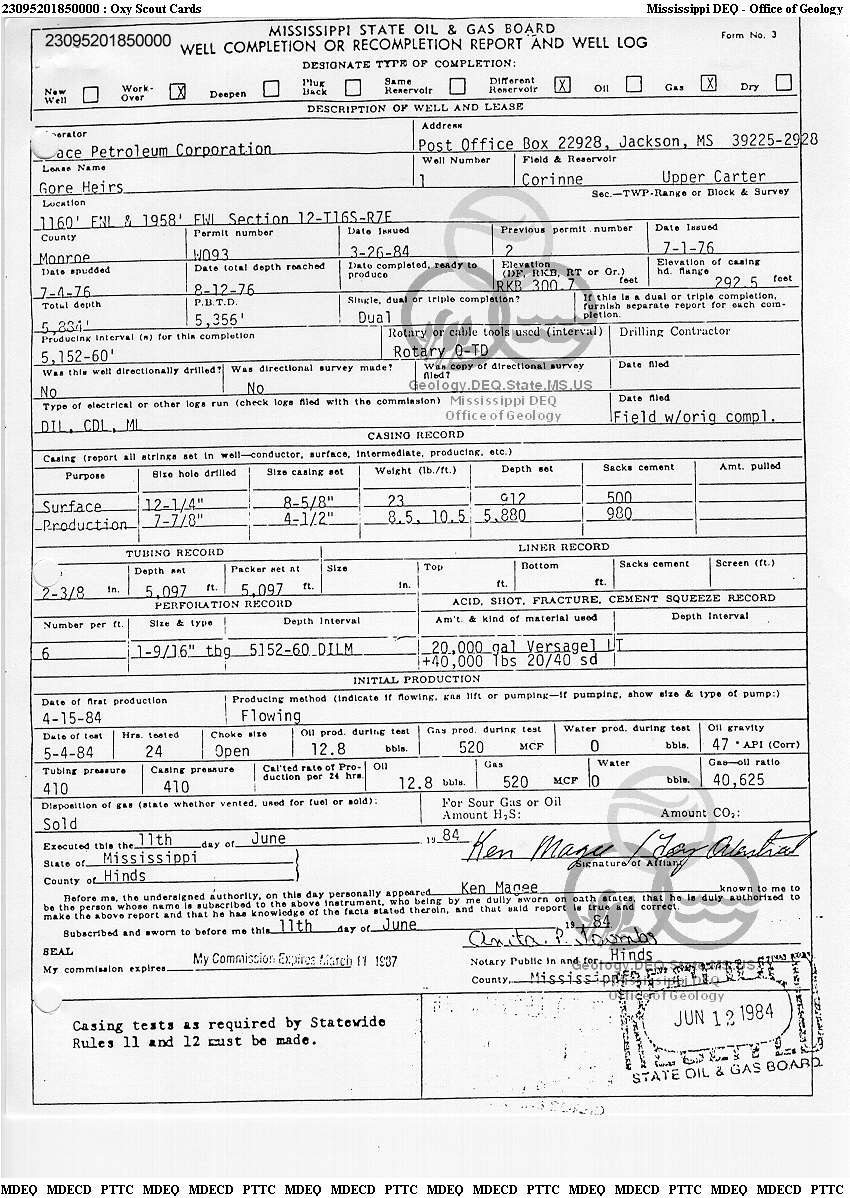 23095201850000 : Oxy Scout Cards Mississippi DEQ - Office of Geology
MISSISSIPPI STATE OIL & GAS BOARD
23095201850000 WELL COMPLETION OR RECOMPLETION REPORT AND WELL LOG Form No. 3
DESIGNATE TYPE OF COMPLETION:
New Well Work-Over X Deepen Plug Back Same Reservoir Different Reservoir X Oil Gas X Dry
DESCRIPTION OF WELL AND LEASE
Address
Petroleum Corporation Post Office Box 22928, Jackson, MS 39225-2928
Lease Name Well Number Field & Reservoir
Gore Heirs 1 Corinne Upper Carter
Location Sec.—TWP-Range or Block & Survey
1160' FNL & 1958' FWL Section 12-T16S-R7E
County Permit number Date Issued Previous permit number Date Issued
Monroe W093 3-26-84 2 7-1-76
Date spudded Date total depth reached Date completed, ready to produce Elevation (DF, RKB, RT or Gr.) Elevation of casing hd. flange
7-4-76 8-12-76 RKB 300.7 feet 292.5 feet
Total depth P.B.T.D. Single, dual or triple completion? If this is a dual or triple completion, furnish separate report for each completion.
5,884' 5,356' Dual
Producing interval (s) for this completion Rotary or cable tools used (interval) Drilling Contractor
5,152-60' Rotary 0-TD
Was this well directionally drilled? Was directional survey made? Was copy of directional survey filed? Date filed
No No
Geology.DEQ.State.MS.US
Type of electrical or other logs run (check logs filed with the commission) Mississippi DEQ Date filed
DIL, CDL, ML Office of Geology Field w/orig compl.
CASING RECORD
Casing (report all strings set in well—conductor, surface, intermediate, producing, etc.)
Purpose Size hole drilled Size casing set Weight (lb./ft.) Depth set Sacks cement Amt. pulled
Surface 12-1/4" 8-5/8" 23 912 500
Production 7-7/8" 4-1/2" 8.5, 10.5 5,880 980
TUBING RECORD LINER RECORD
Depth set Packer set at Size Top Bottom Sacks cement Screen (ft.)
2-3/8 in. 5,097 ft. 5,097 ft. in. ft. ft.
PERFORATION RECORD ACID, SHOT, FRACTURE, CEMENT SQUEEZE RECORD
Number per ft. Size & type Depth Interval Am't. & kind of material used Depth Interval
6 1-9/16" tbg 5152-60 DILM 20,000 gal Versagel LT
+40,000 lbs 20/40 sd
INITIAL PRODUCTION
Date of first production Producing method (indicate if flowing, gas lift or pumping—if pumping, show size & type of pump:)
4-15-84 Flowing
Date of test Hrs. tested Choke size Oil prod. during test Gas prod. during test Water prod. during test Oil gravity
5-4-84 24 Open 12.8 bbls. 520 MCF 0 bbls. 47 ° API (Corr)
Tubing pressure Casing pressure Cal'ted rate of Production per 24 hrs. Oil Gas Water Gas—oil ratio
410 410 12.8 bbls. 520 MCF 0 bbls. 40,625
Disposition of gas (state whether vented, used for fuel or sold): For Sour Gas or Oil
Sold Amount H2S: Amount CO2:
Executed this the 11th day of June 1984
State of Mississippi Ken Magee
County of Hinds Signature of Affiant
Before me, the undersigned authority, on this day personally appeared Ken Magee known to me to
be the person whose name is subscribed to the above instrument, who being by me dully sworn on oath states, that he is duly authorized to
make the above report and that he has knowledge of the facts stated therein, and that said report is true and correct.
Subscribed and sworn to before me this 11th day of June 1984
Anita P.
SEAL Notary Public in and for Hinds
My commission expires My Commission Expires March 11 1987
Geology.DEQ.State.MS.US
County, Mississippi
Office of Geology
Casing tests as required by Statewide
Rules 11 and 12 must be made.
JUN 12 1984
STATE OIL & GAS BOARD
MDEQ MDECD PTTC MDEQ MDECD PTTC MDEQ MDECD PTTC MDEQ MDECD PTTC MDEQ MDECD PTTC MDEQ MDECD PTTC